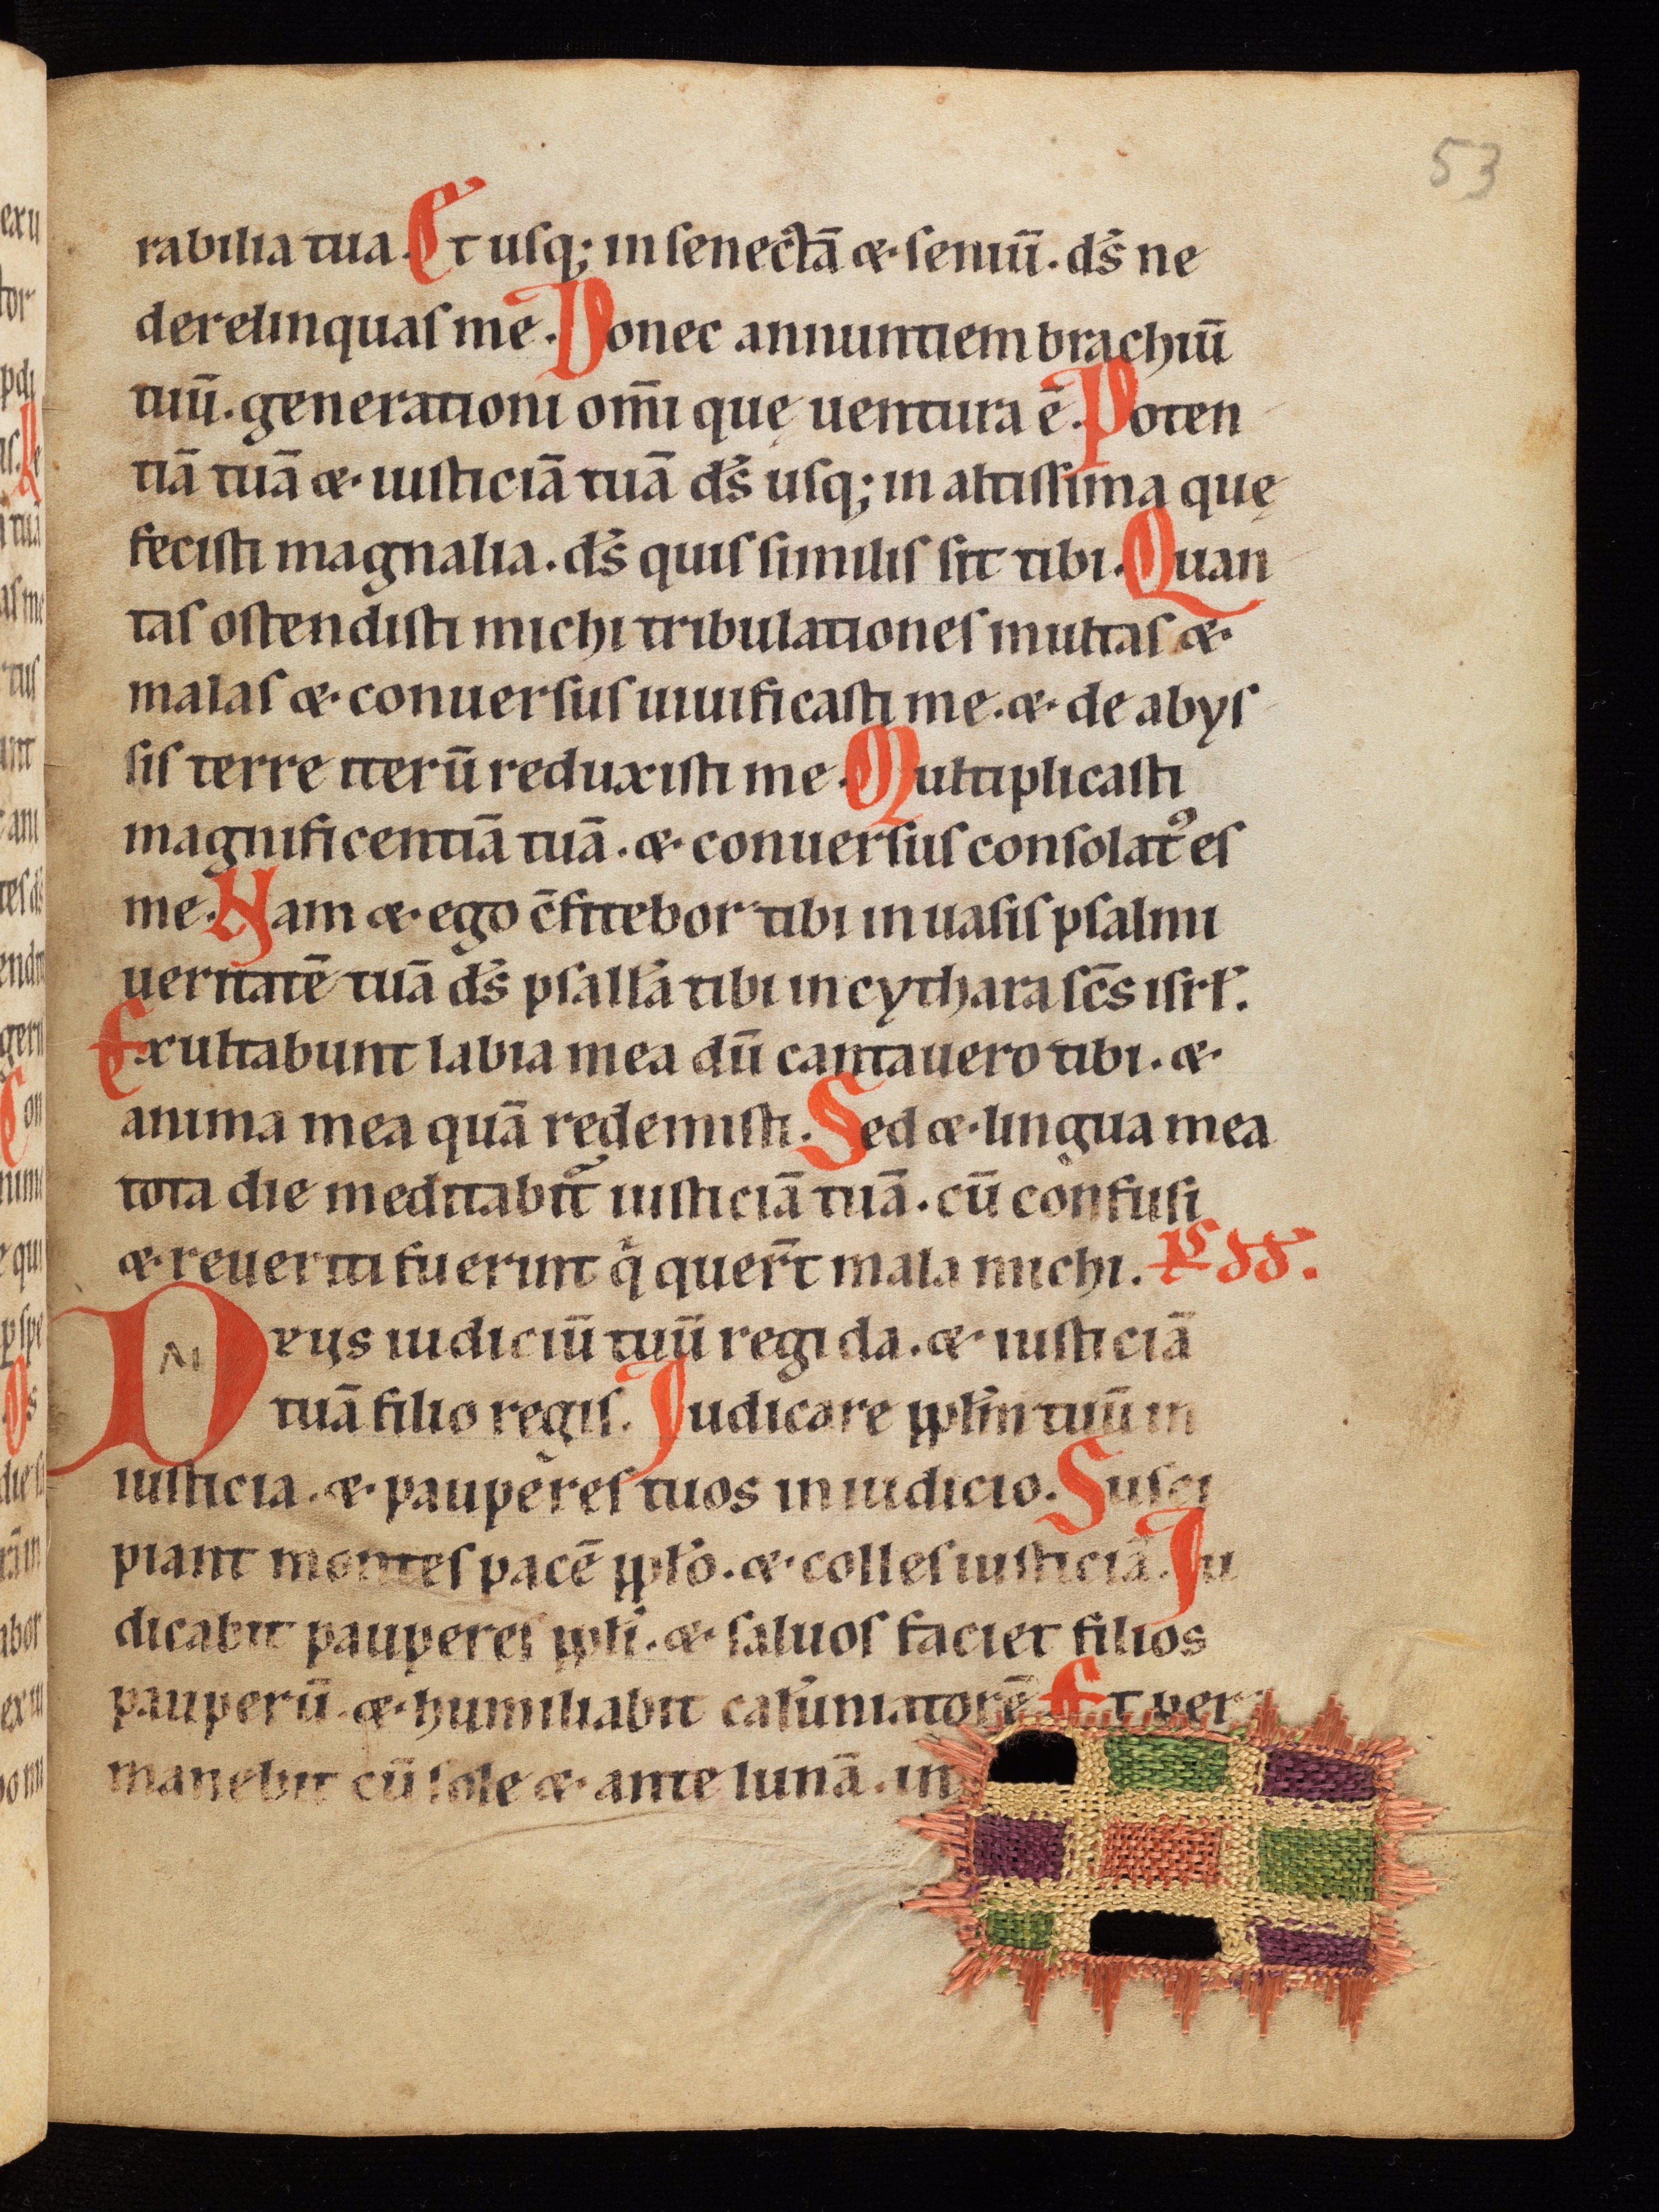 53
rabilia tua. Et usq; in senectā & seniū. ds̄ ne
derelinquas me. Donec annuntiem brachiū
tuū. generationi om̄i quę uentura ē. Poten
tiā tuā & iusticiā tuā ds̄ usq; in altissima quę
fecisti magnalia. ds̄ quis similis sit tibi. Quan
tas ostendisti michi tribulationes multas &
malas & conuersus uiuificasti me. & de abys
sis terre iterū reduxisti me. Multiplicasti
magnificentiā tuā. & conuersus consolat᷒ es
me. Nam & ego c̄fitebor tibi in uasis psalmi
ueritatē tuā ds̄ psallā tibi in cythara sc̄s isrl̄.
Exultabunt labia mea dū cantauero tibi. &
anima mea quā redemisti. Sed & lingua mea
tota die meditabit᷑ iusticiā tuā. cū confusi
& reueriti fuerint q̇ quer̄t mala michi. PS DD.
D eus iudiciū tuū regi da. & iusticiā
tuā filio regis. Iudicare ppłm tuū in
iusticia. & pauperes tuos in iudicio. Susci
piant montes pacē ppło. & colles iusticiā. Iu
dicabit pauperes ppłi. & saluos faciet filios
pauperū. & humiliabit calūniatorē Et per
manebit cū sole & ante lunā. in